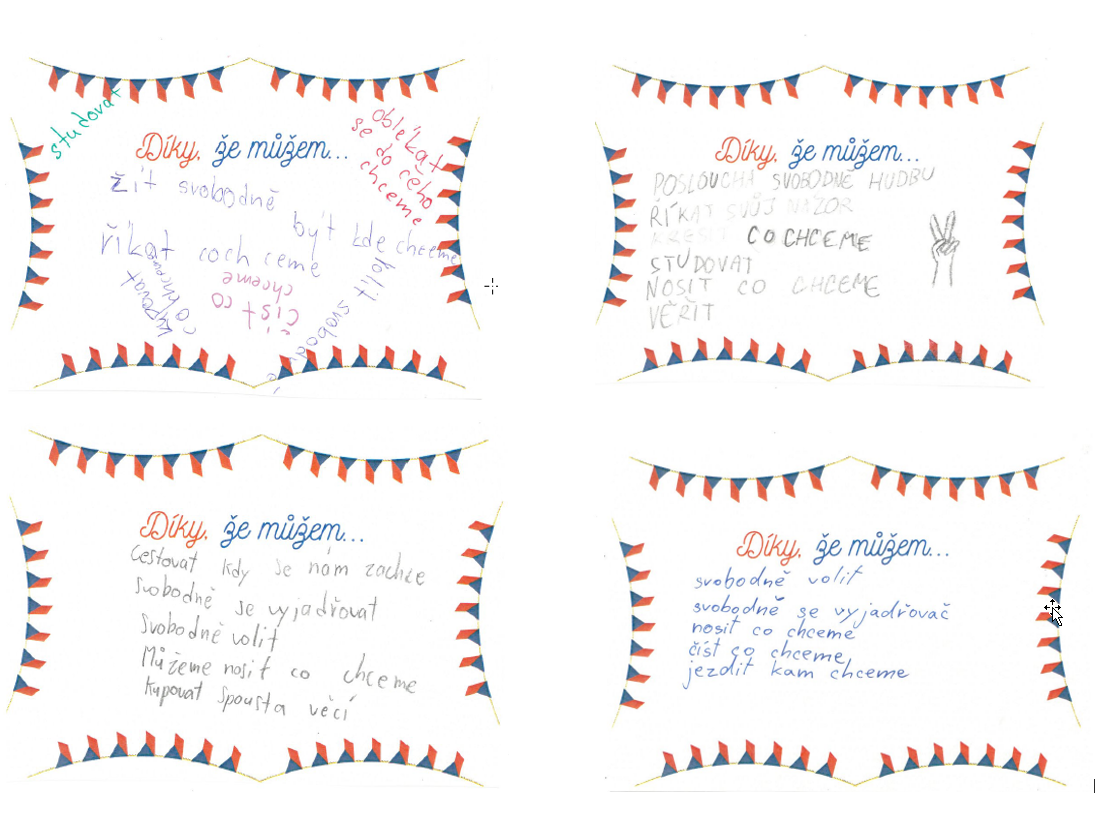 studovat
oblékat
se do čeho
chceme
Díky, že můžem...
žít svobodně
být kde chceme
říkat coch ceme
kupovat
co chceme
číst co
chceme
volit svobodně
Díky, že můžem...
POSLOUCHA SVOBODNĚ HUDBU
ŘÍKAT SVŮJ NÁZOR
KRESIT CO CHCEME
STUDOVAT
NOSIT CO CHCEME
VĚŘIT
Díky, že můžem...
Cestovat kdy se nám zachce
svobodně se vyjadřovat
Svobodně volit
Můžeme nosit co chceme
kupovat spousta věcí
Díky, že můžem...
svobodně volit
svobodně se vyjadřovač
nosit co chceme
číst co chceme
jezdit kam chceme